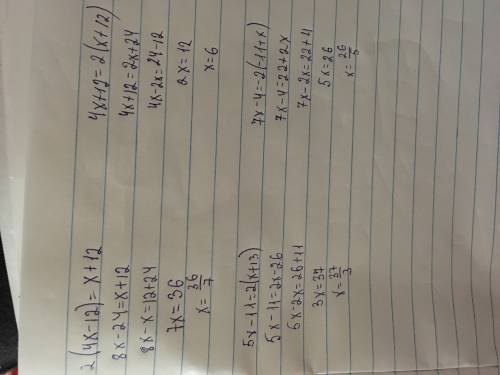 2(4x-12)=x+12
8x-24=x+12
8x-x=12+24
7x=36
x=36/7
4x+12=2(x+12)
4x+12=2x+24
4x-2x=24-12
2x=12
x=6
5x-11=2(x+13)
5x-11=2x-26
5x-2x=26+11
3x=37
x=37/3
7x-4=-2(-11+x)
7x-4=22+2x
7x-2x=22+4
5x=26
x=26/5